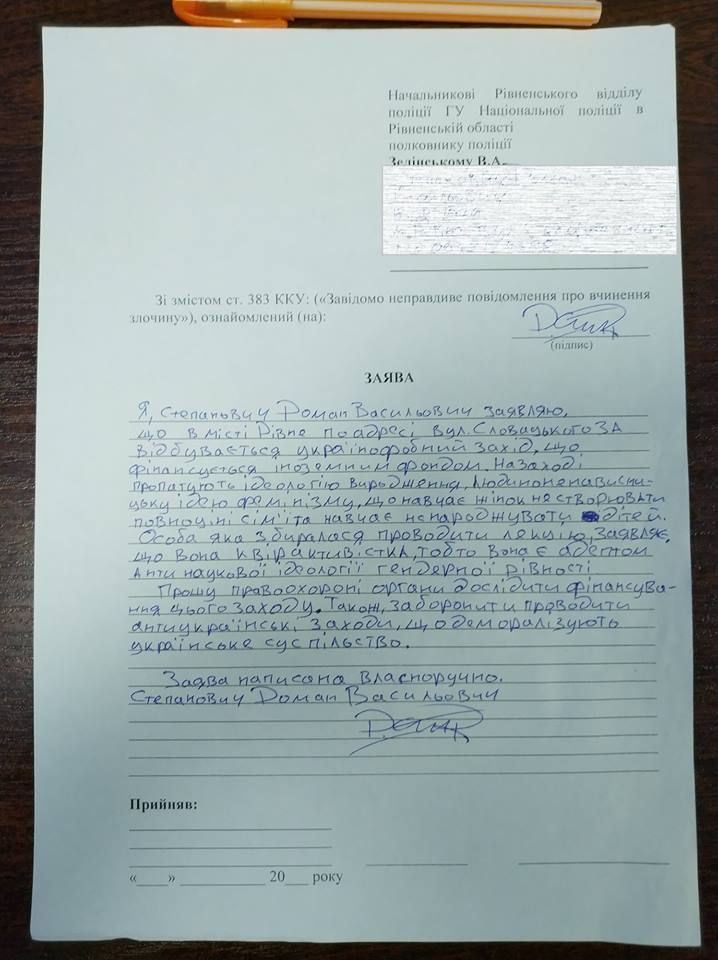 Начальникові Рівненського відділу
поліції ГУ Національної поліції в
Рівненській області
полковнику поліції
Зелінському В.А.
Зі змістом ст. 383 ККУ: («Завідомо неправдиве повідомлення про вчинення
злочину»), ознайомлений (на):
(підпис)
ЗАЯВА
Я, Степанович Роман Васильович заявляю,
що в місті Рівне по адресі вул. Словацького 3А
відбувається українофобний захід, що
фінансується іноземним фондом. На заході
пропагують ідеологію виродження, людиноненависни-
цьку ідею фемінізму, що навчає жінок не створювати
повноцінні сім'ї та навчає ненароджувати дітей.
Особа яка збиралася проводити лекцію, заявляє,
що вона квірактивістка, тобто вона є адептом
антинаукової ідеології гендерної рівності
Прошу правоохороні органи дослідити фінансува-
ння цього заходу. Також, заборонити проводити
антиукраїнські заходи, що деморалізують
українське суспільство.
Заява написана власноручно.
Степанович Роман Васильович
Прийняв:
«____» ____________ 20___ року